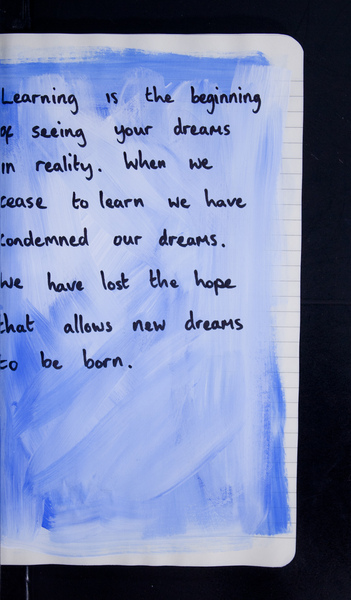 Learning is the beginning
of seeing your dreams
in reality. When we
cease to learn we have
condemned our dreams.
We have lost the hope
that allows new dreams
to be born.